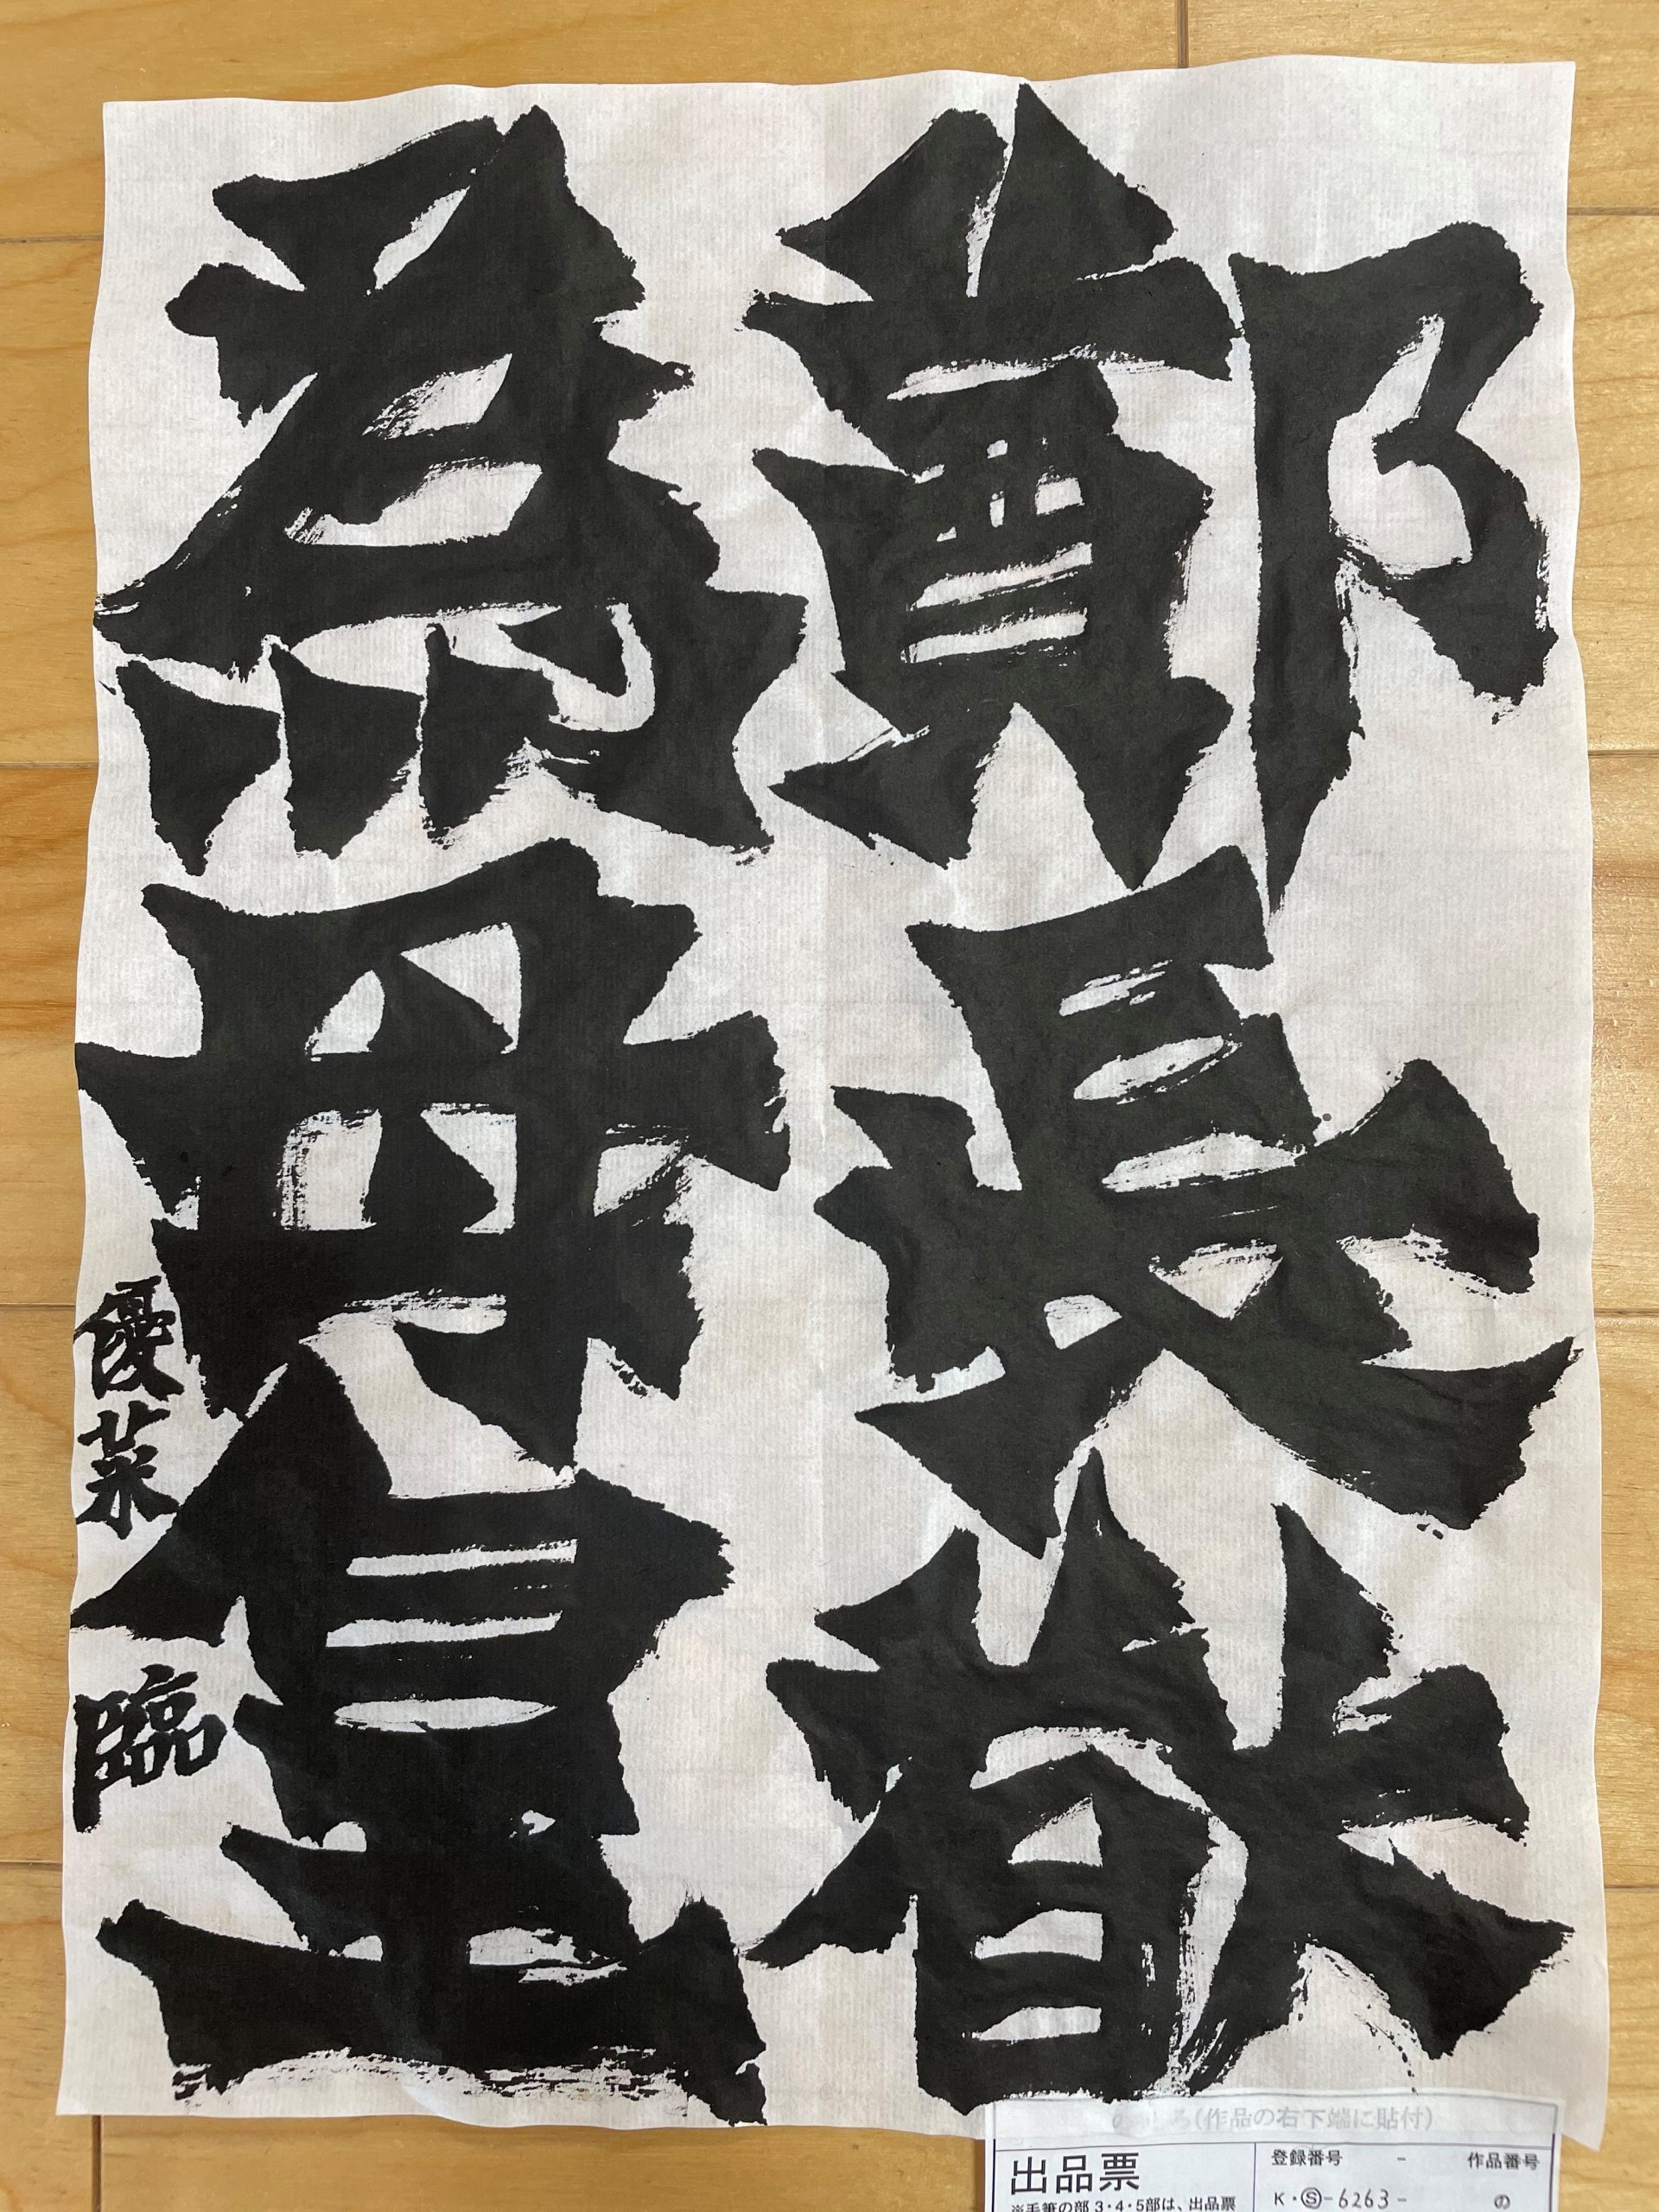 鄭長猷
為母皇
優菜 臨
(作品の右下端に貼付)
出品票
※毛筆の部 3・4・5部は、出品票
登録番号 -
作品番号
K・Ⓢ-6263-
の